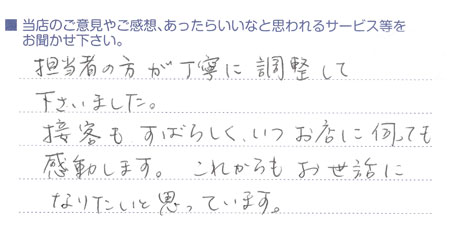 ■ 当店のご意見やご感想、あったらいいなと思われるサービス等を
お聞かせ下さい。
担当者の方が丁寧に調整して
下さいました。
接客もすばらしく、いつお店に伺っても
感動します。これからもお世話に
なりたいと思っています。